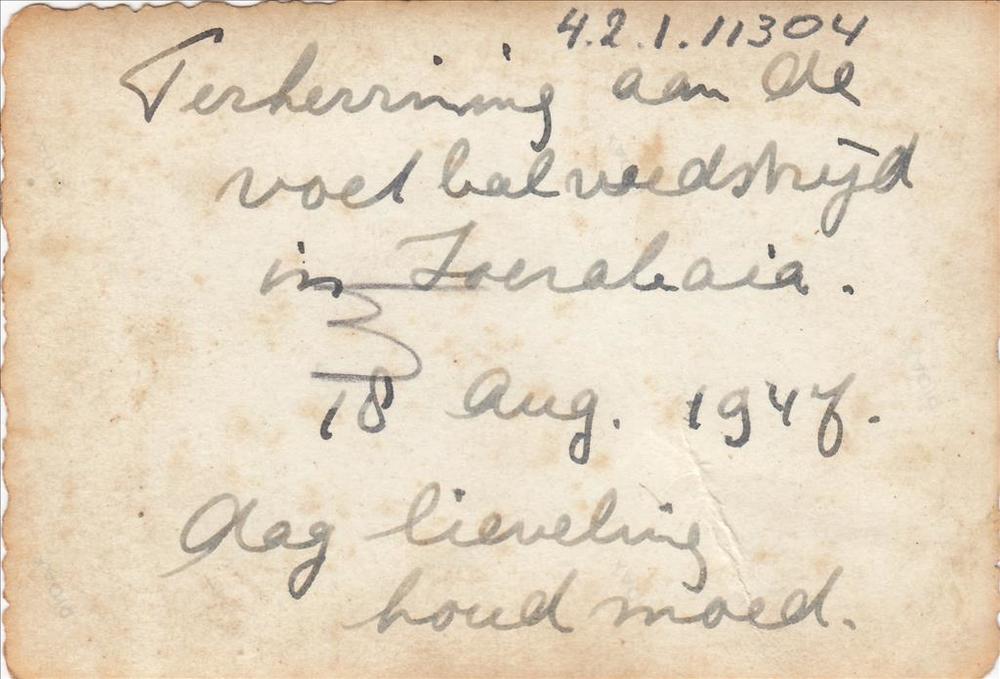 4.2.1.11304
Terherinning aan de
voetbalwedstrijd
in Soerabaia.
18 Aug. 1947.
Dag lieveling
houd moed.